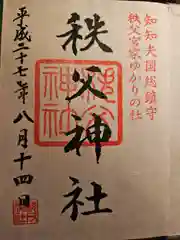 知知夫国総鎮守
秩父宮家ゆかりの社
秩父神社
平成二十七年八月十四日